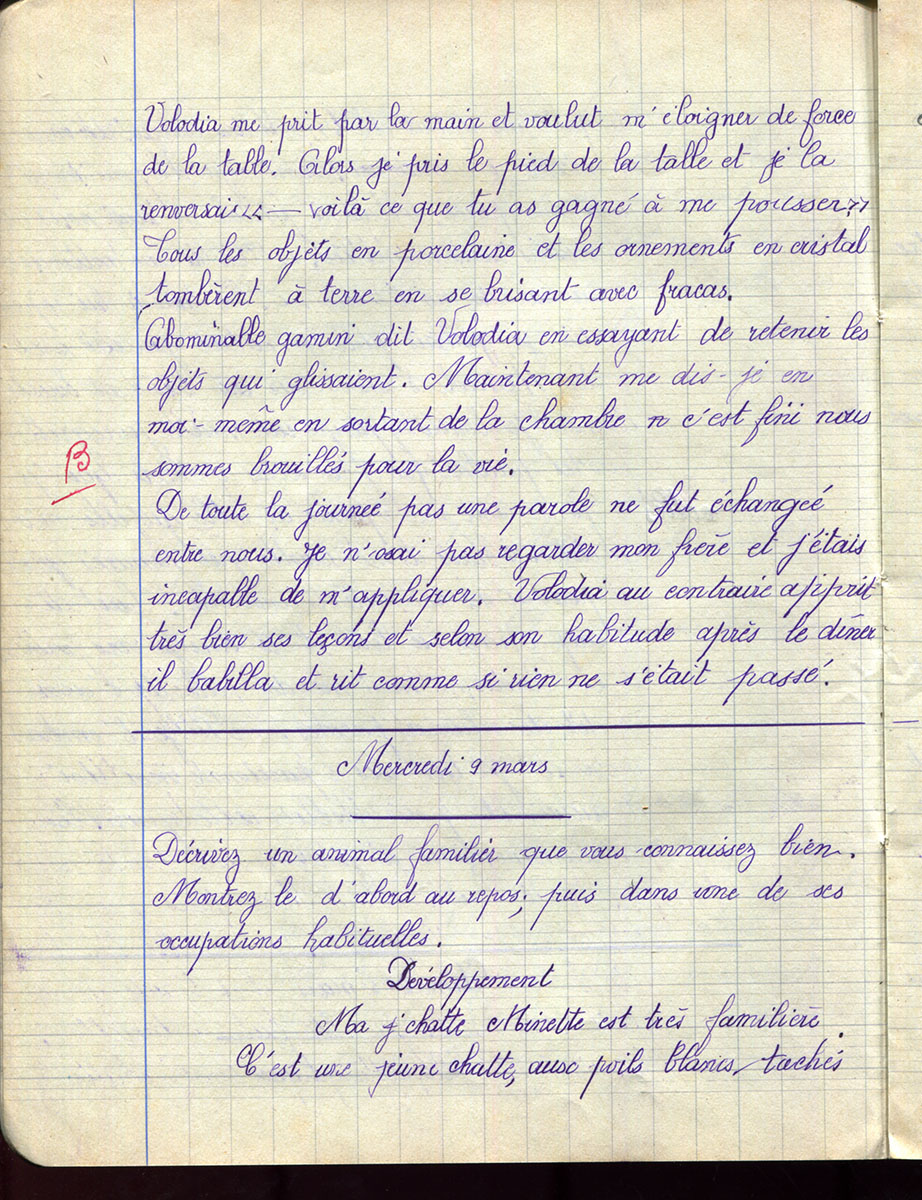 Volodia me prit par la main et voulut m'éloigner de force
de la table. Alors je pris le pied de la table et je la
renversai << — voilà ce que tu as gagné à me pousser >>
Tous les objets en porcelaine et les ornements en cristal
tombèrent à terre en se brisant avec fracas.
Abominable gamin dit Volodia en essayant de retenir les
objets qui glissaient. Maintenant me dis-je en
moi-même en sortant de la chambre n c'est fini nous
sommes brouillés pour la vie.
B
De toute la journeé pas une parole ne fut échangeé
entre nous. Je n'osai pas regarder mon frère et j'étais
incapable de m'appliquer. Volodia au contraire apprit
très bien ses leçons et selon son habitude après le dîner
il babilla et rit comme si rien ne s'était passé.
Mercredi 9 mars
Décrivez un animal familier que vous connaissez bien.
Montrez le d'abord au repos; puis dans une de ses
occupations habituelles.
Développement
Ma j'chatte Minette est très familière.
C'est une jeune chatte, aux poils blancs, tachés